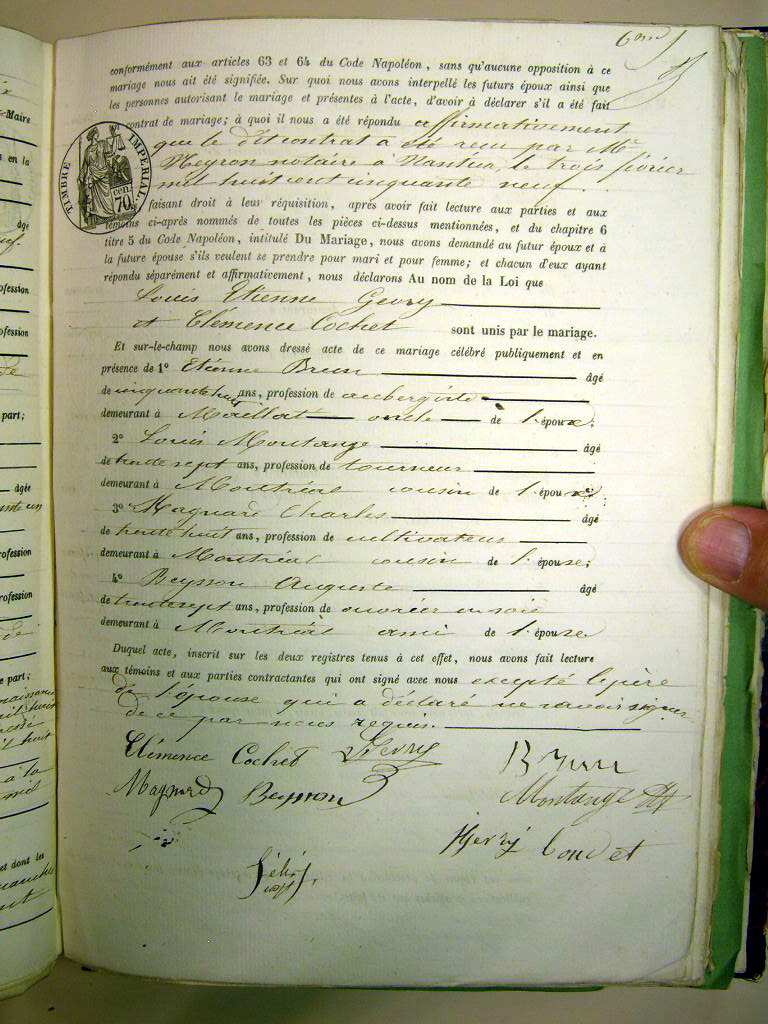 conformément aux articles 63 et 64 du Code Napoléon, sans qu'aucune opposition à ce
mariage nous ait été signifiée. Sur quoi nous avons interpellé les futurs époux ainsi que
les personnes autorisant le mariage et présentes à l'acte, d'avoir à déclarer s'il a été fait
contrat de mariage; à quoi il nous a été répondu affirmativement
que le dit contrat a été reçu par Me
Neyron notaire à Nantua, le trois février
mil huit cent cinquante neuf.
TIMBRE IMPERIAL
70 cen.
faisant droit à leur réquisition, après avoir fait lecture aux parties et aux
témoins ci-après nommés de toutes les pièces ci-dessus mentionnées, et du chapitre 6
titre 5 du Code Napoléon, intitulé Du Mariage, nous avons demandé au futur époux et à
la future épouse s'ils veulent se prendre pour mari et pour femme; et chacun d'eux ayant
répondu séparément et affirmativement, nous déclarons Au nom de la Loi que
Louis Etienne Gevry
et Clémence Cochet sont unis par le mariage.
Et sur-le-champ nous avons dressé acte de ce mariage célébré publiquement et en
présence de 1º Etienne Brun âgé
de cinquante huit ans, profession de aubergiste
demeurant à Maillat oncle de l'époux;
2º Louis Montange âgé
de trente sept ans, profession de tourneur
demeurant à Montréal cousin de l'épouse;
3º Magnard Charles âgé
de trente huit ans, profession de cultivateur
demeurant à Montréal cousin de l'épouse;
4º Beysson Auguste âgé
de trente sept ans, profession de ouvrier en soie
demeurant à Montréal ami de l'épouse
Duquel acte, inscrit sur les deux registres tenus à cet effet, nous avons fait lecture
aux témoins et aux parties contractantes qui ont signé avec nous excepté le père
de l'épouse qui a déclaré ne savoir signer
de ce par nous requis.
Clémence Cochet Gevry Brun
Magnard Beysson Montange
Gevry